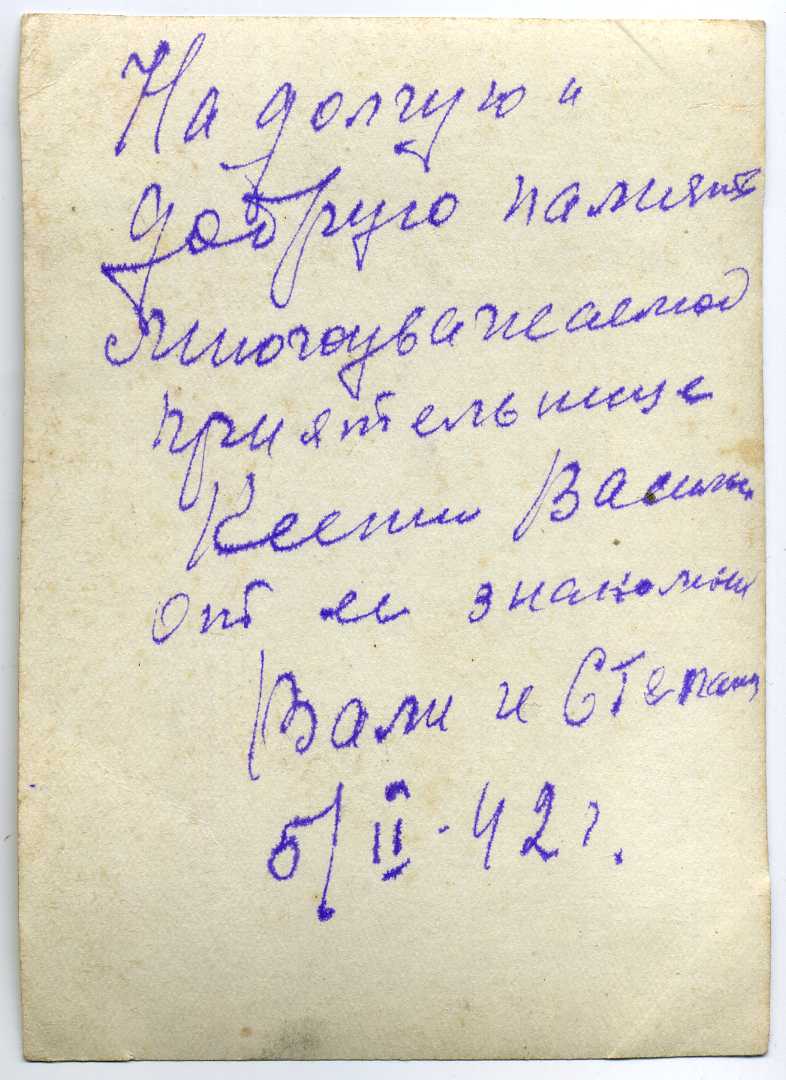 На долгую и
добрую память
многоуважаемой
приятельнице
Ксении
от ее знакомых
Вали и Степана
5/II-42 г.